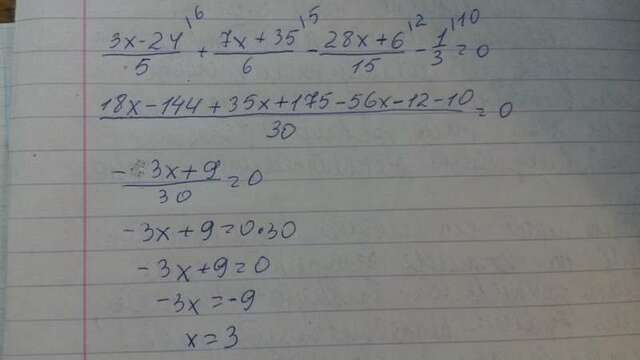 (3x-24)/5 \6 + (7x+35)/6 \5 - (28x+6)/15 \2 - 1/3 \10 = 0
(18x-144+35x+175-56x-12-10)/30 = 0
(-3x+9)/30 = 0
-3x+9=0·30
-3x+9=0
-3x=-9
x=3